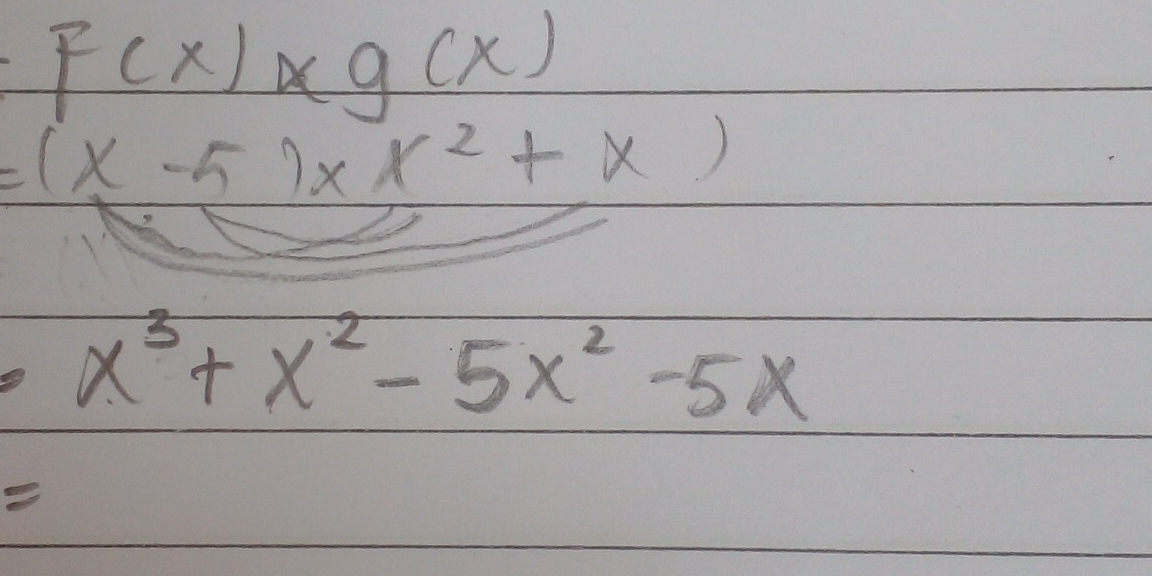 F(x) x g(x)
= (x -5) x x² + x )
= x³ + x² - 5x² -5x
=